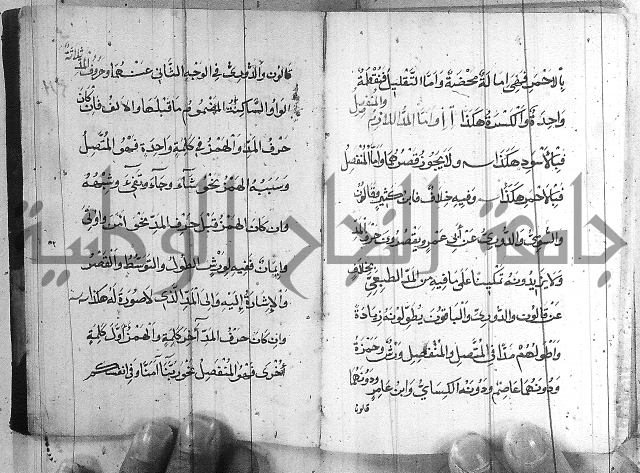 بالاحمر فهي امالة محضة واما التقليل فنقطة
واحدة والكسرة هكذا واما المد اللازم
والمتصل
فبالاسود هكذا ولا يجوز قصرهما واما المنفصل
فبالاحمر هكذا وفيه خلاف فابن كثير وقالون
والسوسي والدوري عن أبي عمرو يقصرون حرف المد
ولا يزيدونه تمكينا على ما فيه من المد الطبيعي بخلاف
عن قالون والدوري والباقون يطولونه زيادة
واطولهم مدا في المتصل والمنفصل ورش وحمزة
ودونهما عاصم ودونه الكسائي وابن عامر ودونهما
قالون
قالون والدوري في الوجه الثاني عنهما وحروف المد ثلاثة
الواو الساكنة المضموم ما قبلها والالف فان كان
حرف المد والهمز في كلمة واحدة فهو المتصل
وسببه الهمز نحو شاء وجاء وشبهه
وان كان الهمز قبل حرف المد نحو امن واوتي
وايمان ففيه لورش الطول والتوسط والقصر
والاشارة اليه والى المد الذي لا صورة له هكذا
وان كان حرف المد آخر كلمة والهمز اول كلمة
اخرى فهو المنفصل نحو ربنا آمنا وفي انفسكم
جامعة النجاح الوطنية